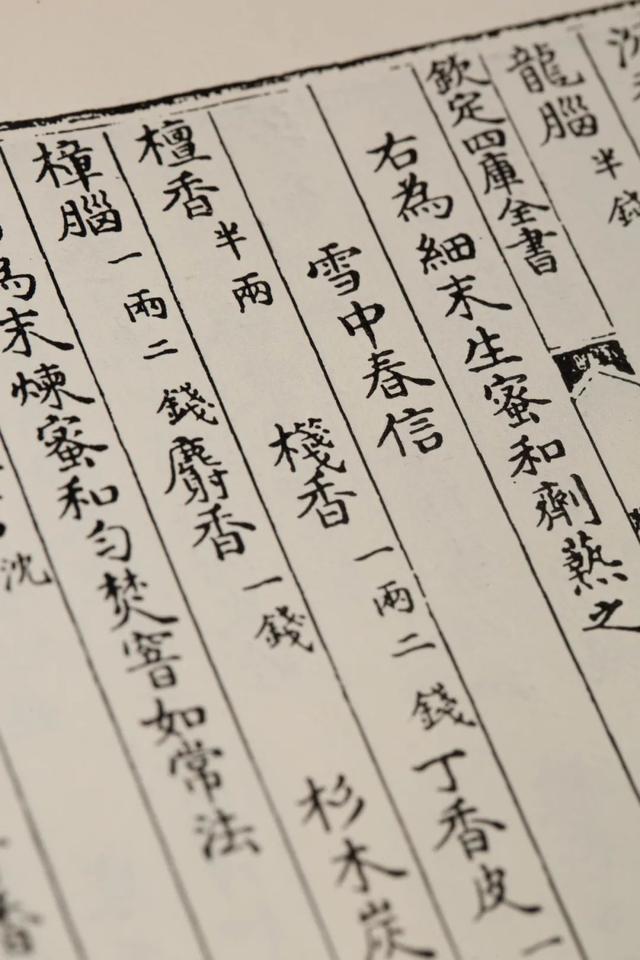 龍腦半錢
欽定四庫全書
右為細末生蜜和劑爇之
雪中春信
檀香半兩 棧香一兩二錢 丁香皮一
樟腦一兩二錢 麝香一錢 杉木炭
為末煉蜜和勻焚窨如常法
沈